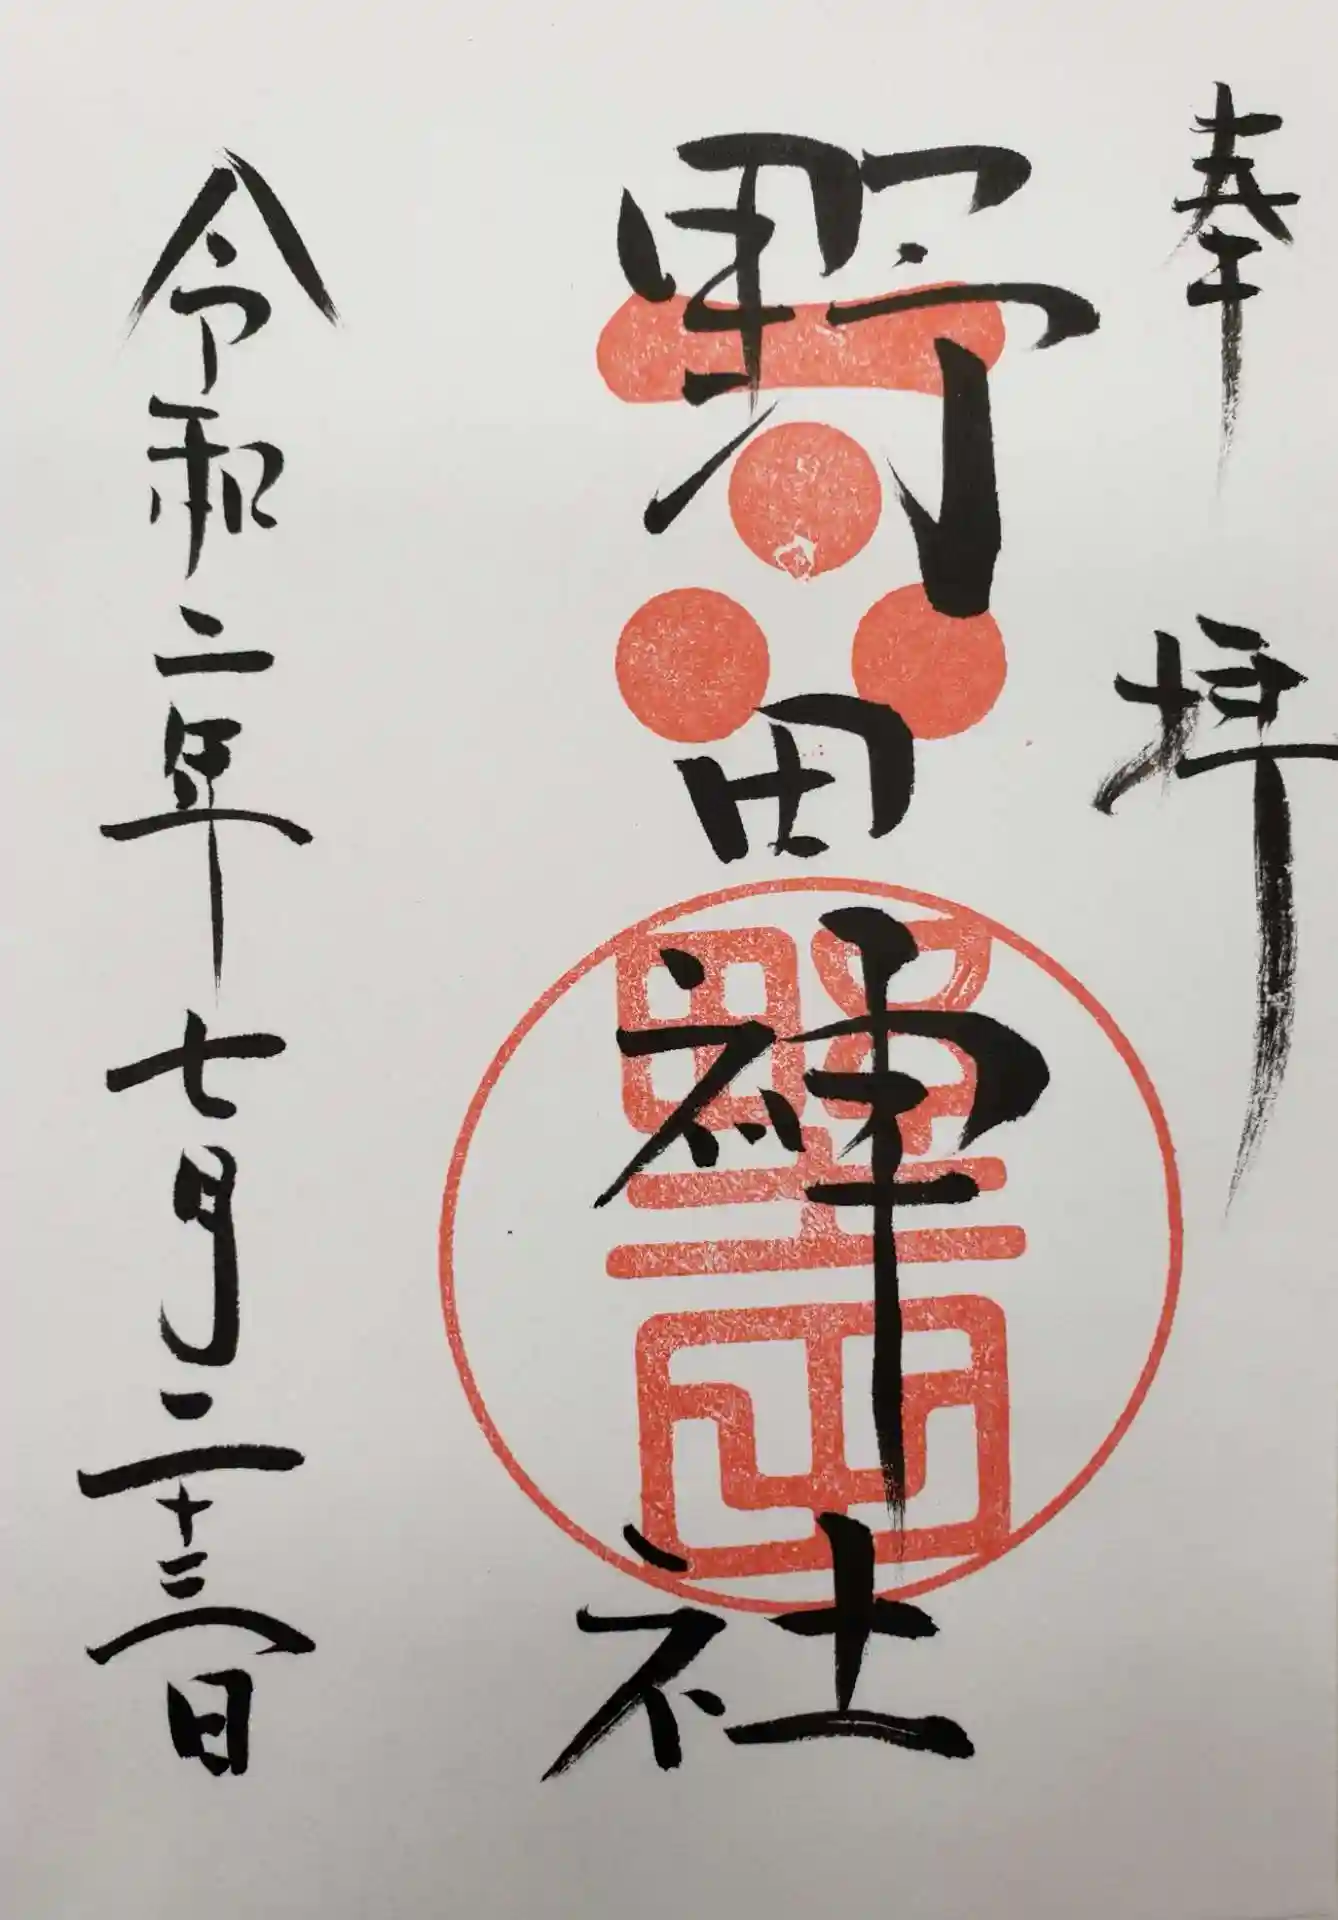 奉拝
野田神社
野田
令和二年七月二十三日